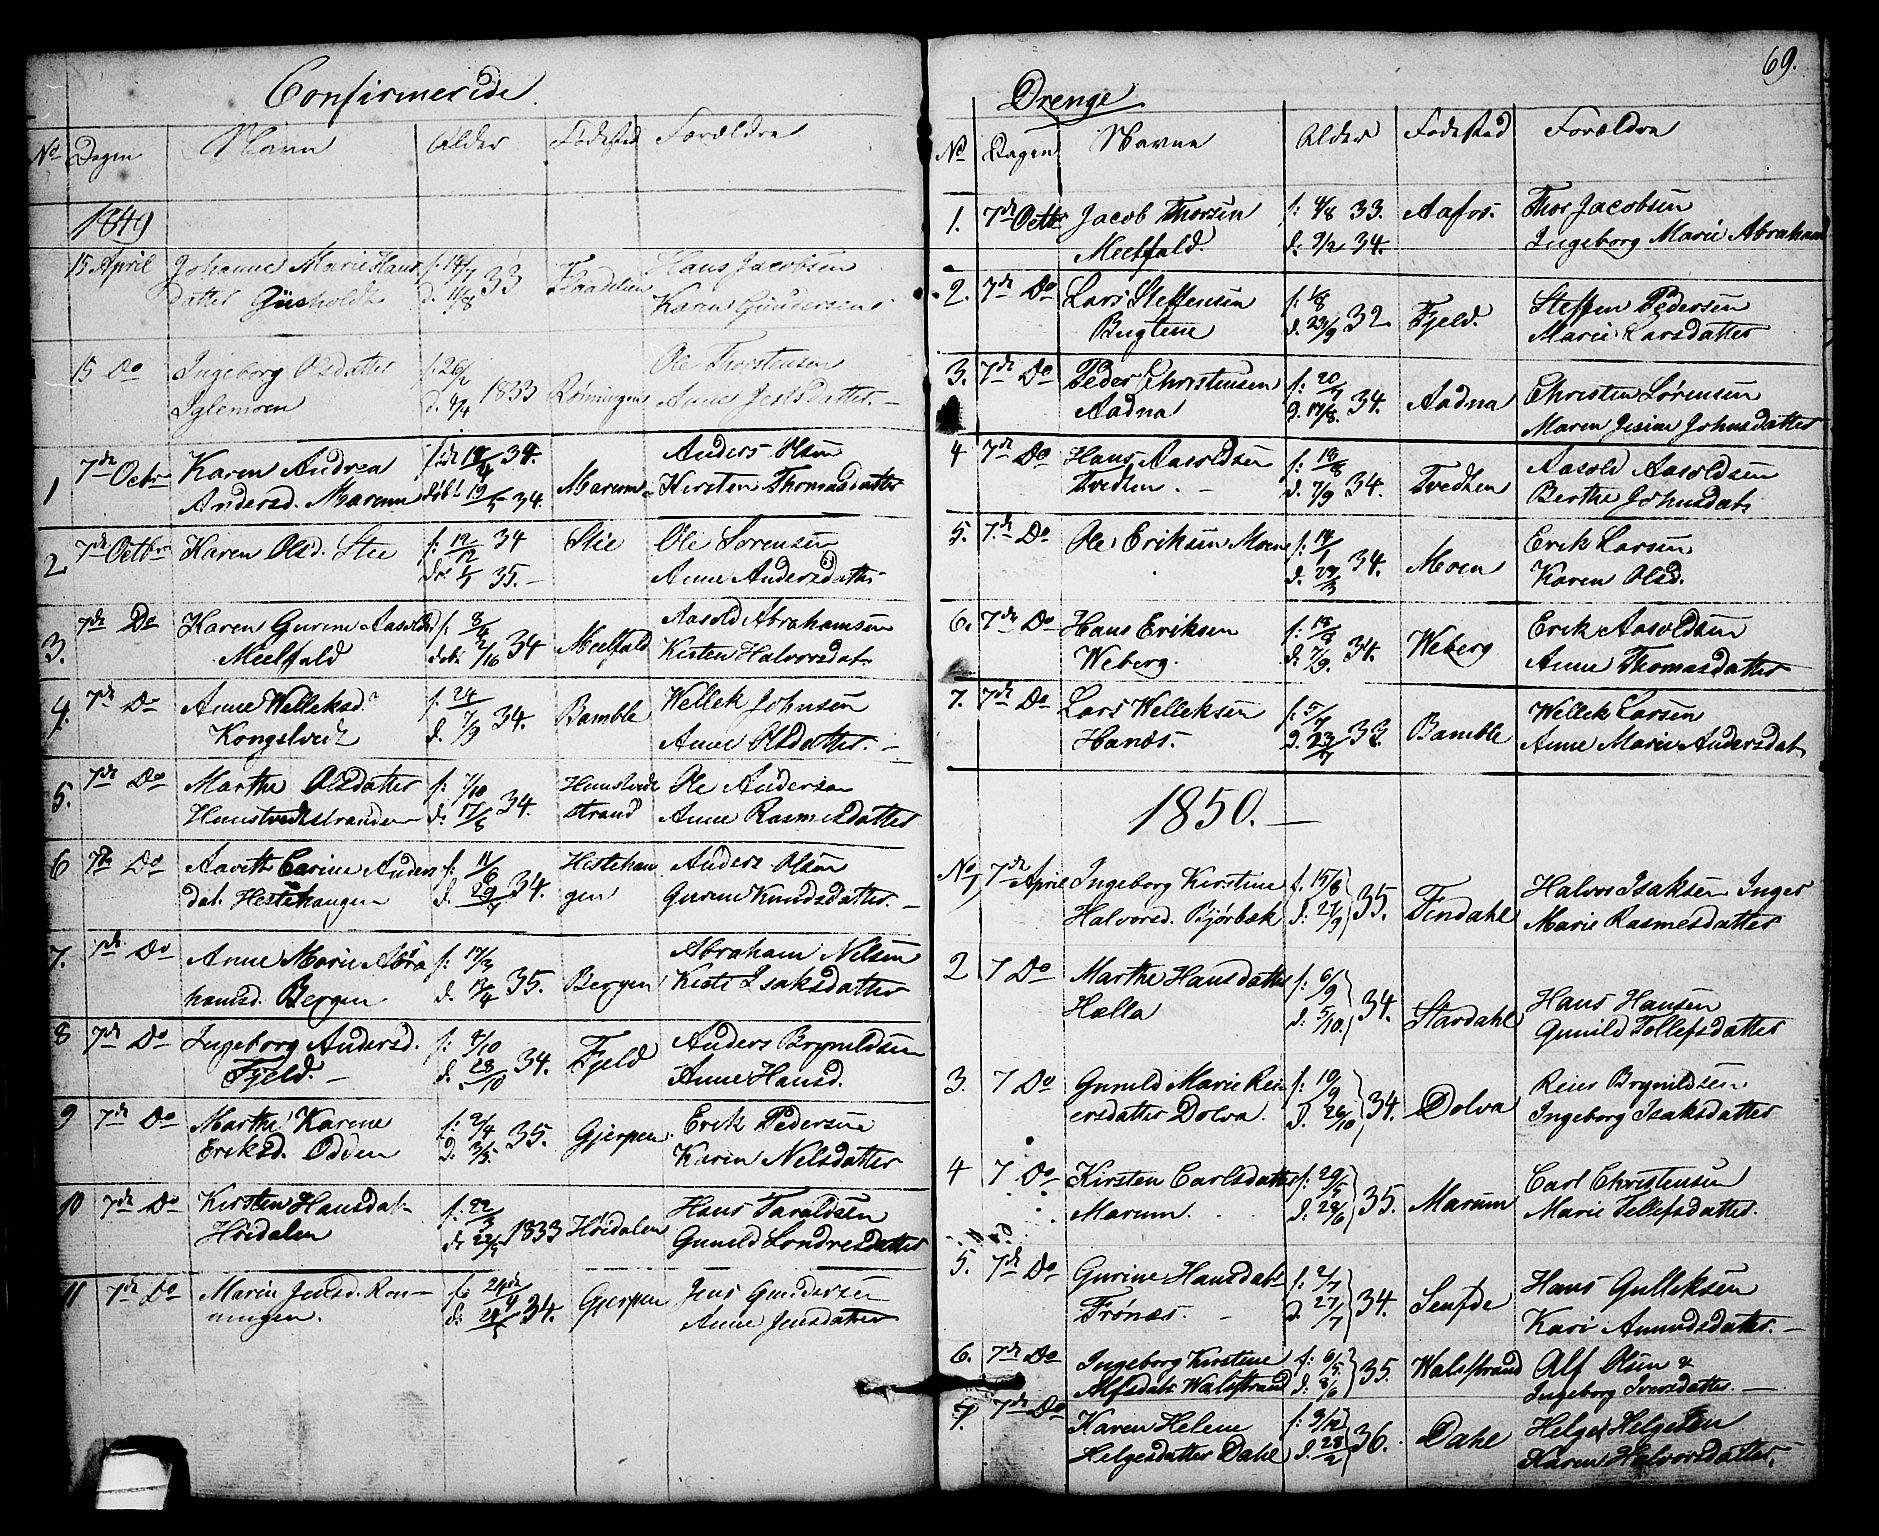 Confirmerede
No Dagen Navn Alder Fødested Forældre
1849
15 April Johanne Marie Hans f. 14/7 33 Hans Jacobsen
datter d. 11/8 Karen Gundersen
15 Do Ingeborg Olsdatter f. 26/2 1833 Rønningen Ole Thorstensen
Iglemoen d. 4/4 Anne Jensdatter. —
1 7de Octbr Karen Andrea 34. Marum Anders Olsen
Andersd. Marum døbt 19/5 34. Kirsten Thomasdatter
2 7de Octbr Karen Olsd. Stie f: 12/12 34 Stie Ole Sorensen
35. — Anne Andersdatter
3. 7de Do Karen Gurine Aasolds f. 34 Meelfald Aasold Abrahamsen
Meelfald Kirsten Halvorsdat
4. 7de Do Anne Welleksd. f. 34. Bamble Wellek Johnsen
Kongstvedt d. 7/9 Anne Olsdatter. —
5. 7de Do Marthe Olsdatter f: 7/10 34. Hunstvedt Ole Andersen
Hunstvedtstranden d. strand Anne Rasmesdatter
6 7de Do Carine Anders f. 34. Hestehau Anders Olsen
dat. Hestehaugen d. gen Gurine Knudsdatter. —
7. 7de Do Anne Marie Abra f. 17/3 35. Bergen Abraham Nilsen
hamsd. Bergen d. Kisti Isaksdatter
8 7de Do Ingeborg Andersd. f. 34. Fjeld Anders Brynildsen
Fjeld. — d. 28/10 Anne Hansd.
9 7de Do Marthe Karine f. 2/4 35. Gjerpen Erik Pedersen
Eriksd. Odden D. 3/5. Karen Nelsdatter
10 7de Do Kirsten Hansdat f. 22/3 1833 Høidalen Hans Taraldsen
Høidalen d. Gunild Londresdatter
11 7de Do Maren Jensd. Ron- f. 34. Gjerpen Jens Gundersen
ningen. d. Anne Jensdatter
69.
Drenge
No Dagen Navne Alder Fødestad Forældre
1. 7de Octbr Jacob Thorsen f: 4/8 33. Aafos. Thor Jacobsen
Meelfald. d. 9/2 34. Ingeborg Marie Abraham
2. 7de Do Lars Steffensen f: 1/8 32 Fjeld. Steffen Pedersen
Bugtene d. 23/9 Marie Larsdatter
3. 7de Do Peder Christensen f. 20/7 34. Aadna Christen Lørensen
Aadna d. 17/8. Maren Jesine Johnsdatter
4 7de Do Hans Aasoldsen f: 18/8 34. Tvedten Aasold Aasoldsen
Tvedten. — d. 7/9 Berthe Johnsdat
5. 7de Do Ole Eriksen Moen f: 14/1 34. Moen Erik Larsen
d. 23/3 Karen Olsd.
6. 7de Do Hans Eriksen f: 18/8 34. Weberg Erik Aasoldsen
Weberg. d. 7/9. Anne Thomasdatter
7. 7de Do Lars Welleksen f. 5/7 33. Bamble Wellek Larsen
Hanæs. D. 23/7 Anne Marie Andersdat
1850. —
No 1 7de April Ingeborg Kirstine f. 15/8 35. Findahl Halvor Isaksen Inger
Halvorsd. Bjørbæk D. 27/9 Marie Rasmesdatter
2 7 Do Marthe Hansdatter f: 6/9 34. Stordahl Hans Hansen
Hella d. 5/10. Gunild Tollefsdatter
3. 7 Do Gunild Marie Rei f: 19/9 34. Dolva Reier Brynildsen
ersdatter Dolva. D. 26/10 Ingeborg Isaksdatter
4 7 Do Kirsten Carlsdatter f: 35. Marum Carl Christensen
Marum. D: 28/6 Marie Tellefsdatter.
5. 7de Do Gurine Hansdat f. 2/7 34. Hans Gulleksen
Trönæs. — D. 27/7 Kari Amundsdatter. —
6. 7de Do Ingeborg Kirstine f: 6/5 35. Walsstrand Alf Olsen &
Alfsdat. Walsstrand d: 8/6 Ingeborg Iversdatter. —
7. 7de Do Karen Helene f: 3/12 36. Dahl Helge Helgesen
Helgesdatter Dahl D. 28/2 Karen Halvorsdatter.